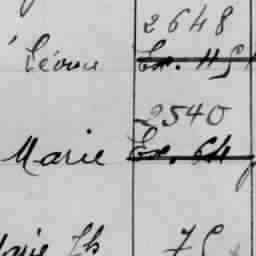 2648
Léonie Ex. 115
2540
Marie Ex. 64
Marie Th 75